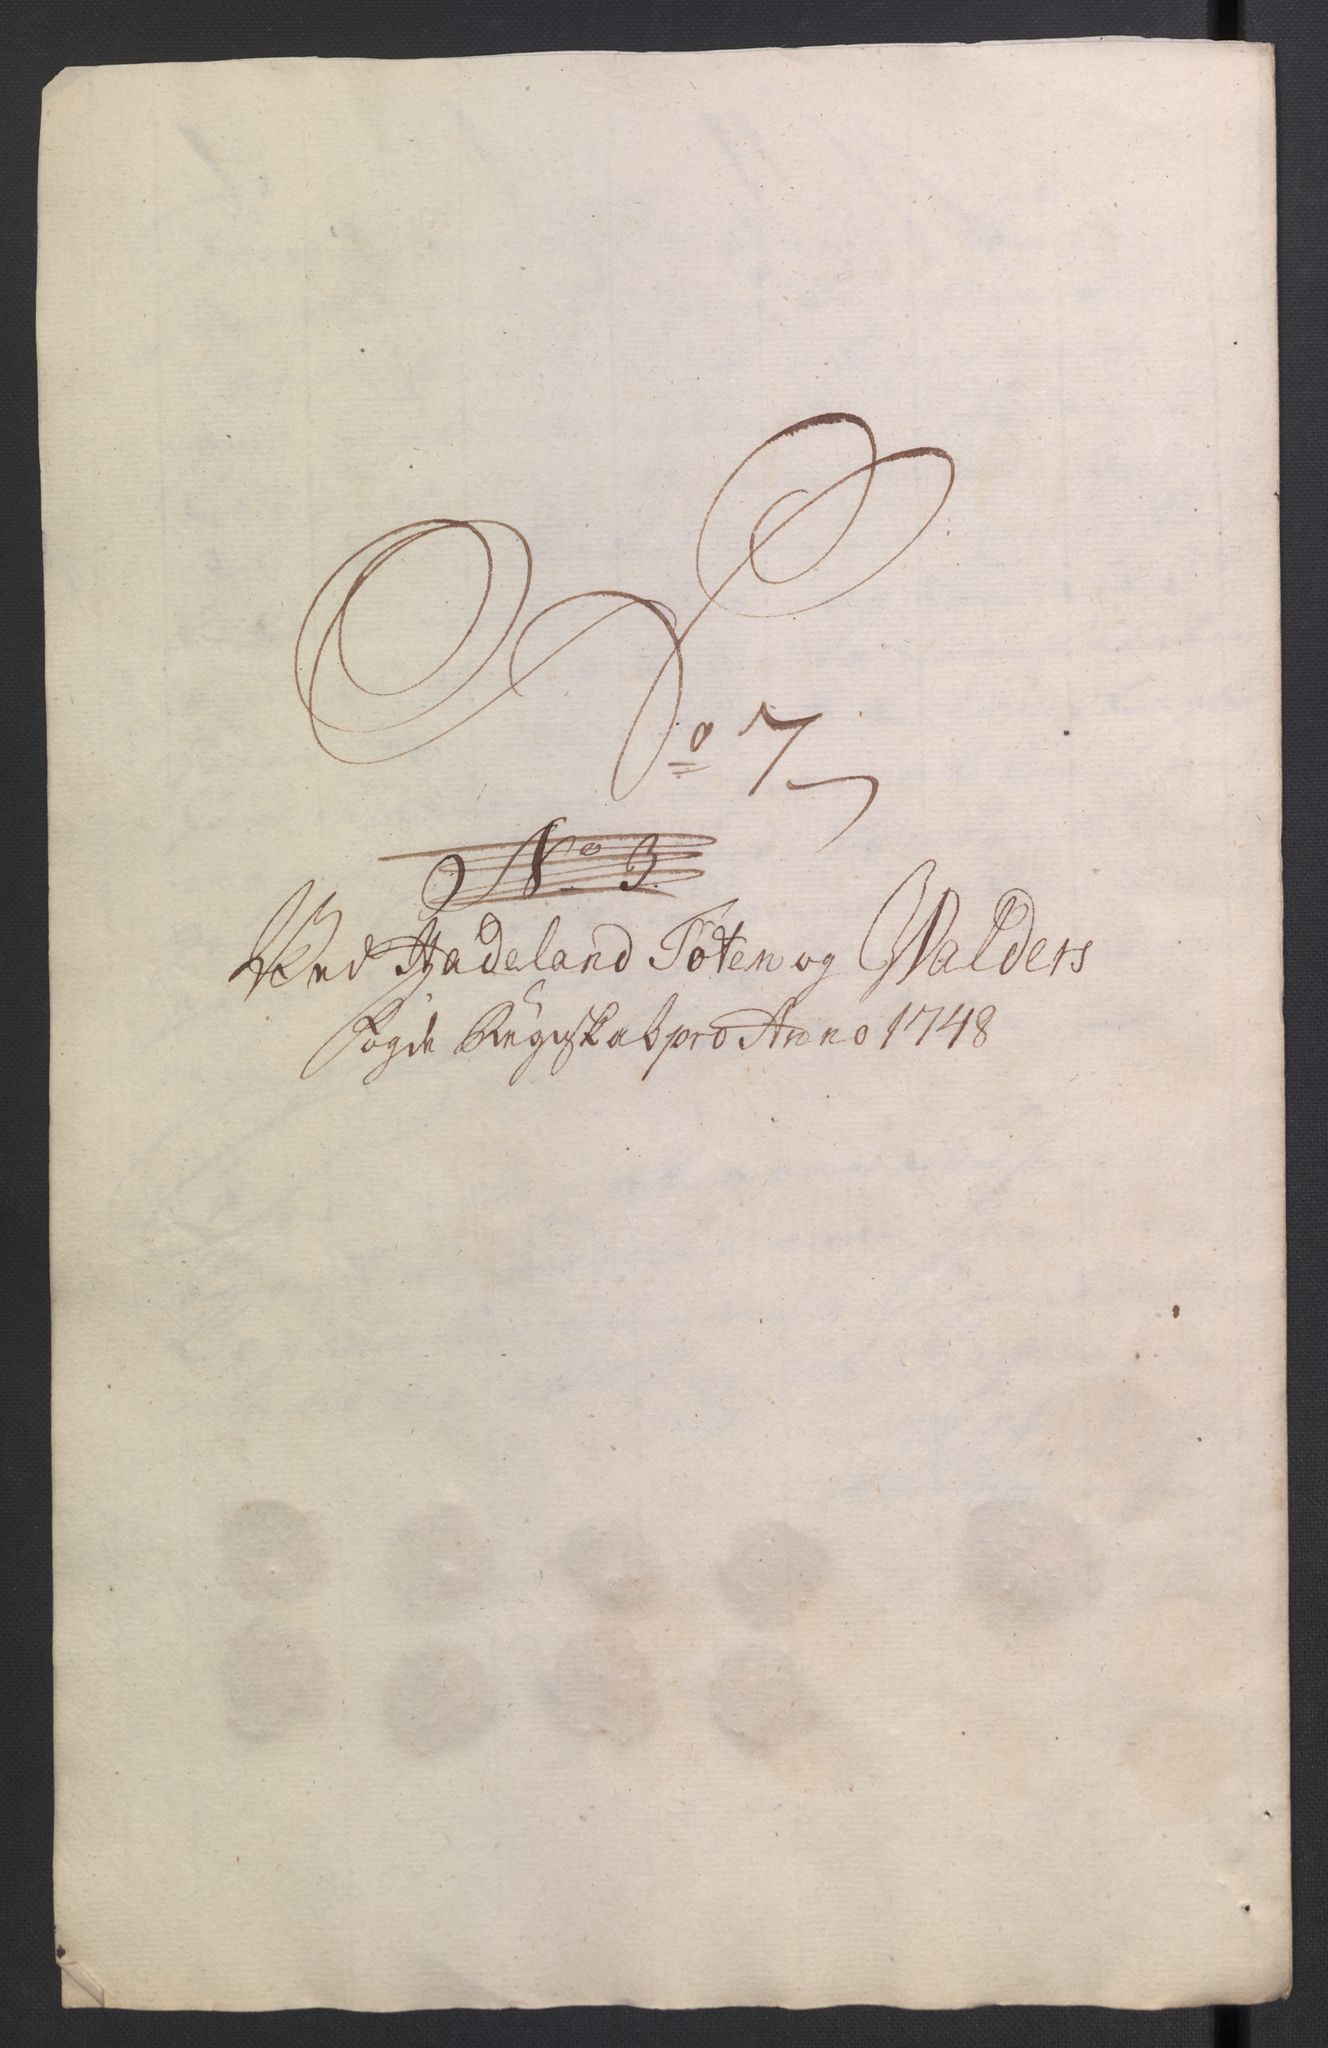 No 7
No 3.
Ved Hadeland Toten og Walders
fogde Regnskab pro Anno 1748